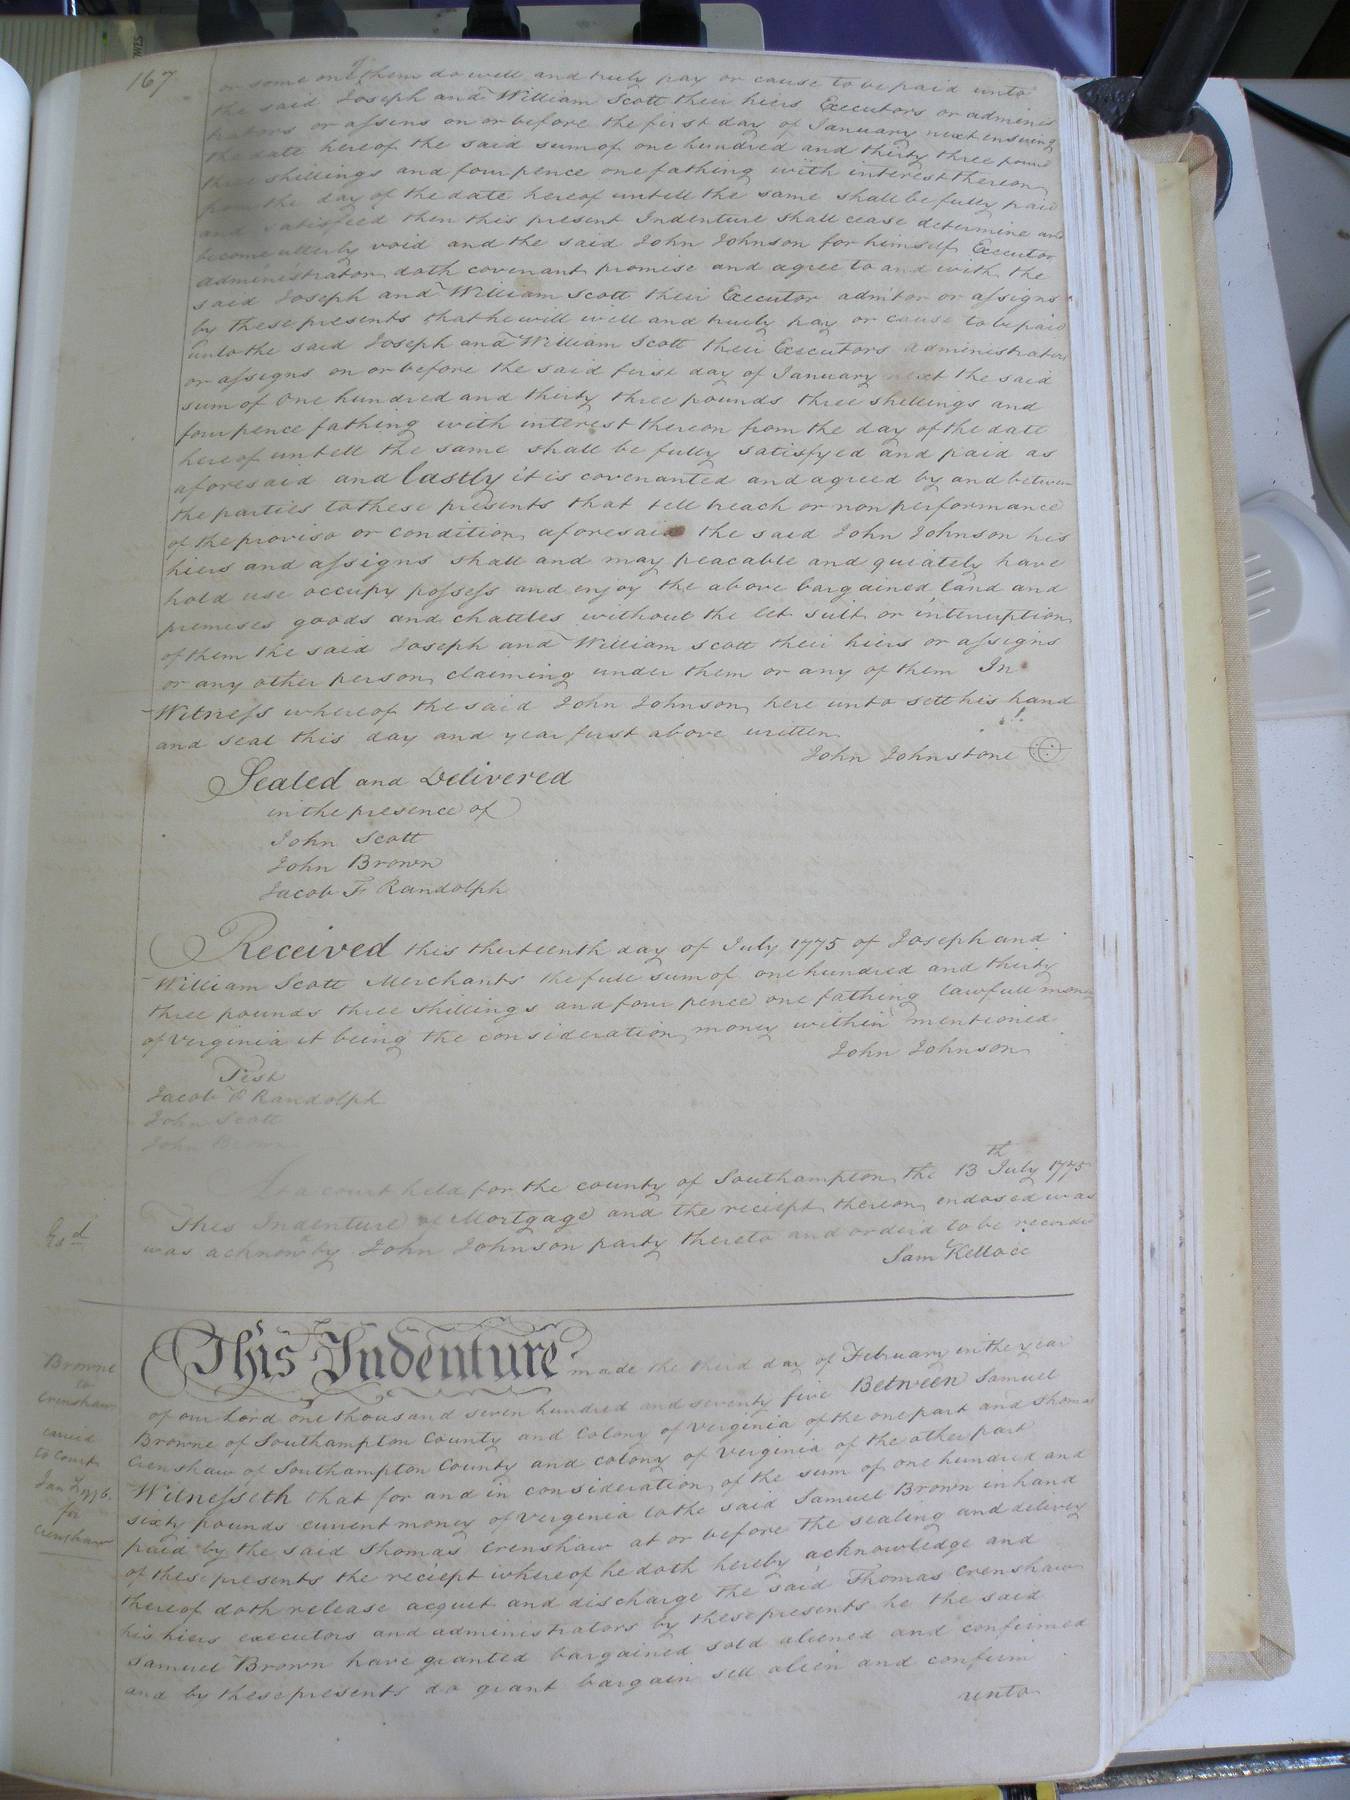 167
or some one of them do well and truly pay or cause to be paid unto
the said Joseph and William Scott their hiers Executors or adminis
trators or assens on or before the first day of January next ensuing
the date hereof the said sum of one hundred and thirty three pound
three shillings and four pence one fathing with interest thereon
from the day of the date hereof untell the same shall be fully paid
and satisfied then this present Indenture shall cease determine and
become utterly void and the said John Johnson for himself Executor
administrator doth covenant promise and agree to and with the
said Joseph and William Scott their Executor admitor or assigns
by these presents that he will well and truely pay or cause to be paid
unto the said Joseph and William Scott their Executors administrators
or assigns on or before the said first day of January next the said
sum of One hundred and thirty three pounds three shellings and
four pence fathing with interest thereon from the day of the date
hereof untell the same shall be fully satisfyed and paid as
aforesaid and lastly it is covenanted and agreed by and between
the parties to these presents that tell breach or non performance
of the proviso or condition aforesaid the said John Johnson his
hiers and assigns shall and may peacable and quiately have
hold use occupy possess and enjoy the above bargained land and
premises goods and chattles without the let suit or interruption
of them the said Joseph and William Scott their hiers or assigns
or any other person claiming under them or any of them In
Witness whereof the said John Johnson here unto sett his hand
and seal this day and year first above written
John Johnstone
Sealed and Delivered
in the presence of
John Scott
John Brown
Jacob F Randolph
Received this thirteenth day of July 1775 of Joseph and
William Scott Merchants the full sum of one hundred and thirty
three pounds three shillings and four pence one fathing lawfull money
of Verginia it being the consideration money within mentioned
John Johnson
Test
Jacob F Randolph
John Scott
John Brown
At a court held for the county of Southampton the 13th July 1775
This Indenture of Mortgage and the reciept thereon endosed was
was acknowd by John Johnson party thereto and orderd to be recorded
Sam Kelloce
Exd
This Indenture made the third day of February in the year
of our Lord one thousand seven hundred and seventy five Between Samuel
Browne of Southampton County and Colony of Verginia of the one part and Thomas
Crenshaw of Southampton County and colony of Verginia of the other part
Witnesseth that for and in consideration of the sum of one hundred and
sixty pounds current money of Verginia to the said Samuel Brown in hand
paid by the said Thomas Crenshaw at or before the sealing and delivery
of these presents the reciept whereof he doth hereby acknowledge and
thereof doth release acquet and discharge the said Thomas Crenshaw
his hiers executors and administrators by these presents he the said
Samuel Brown have granted bargained sold aliened and confirmed
and by these presents do grant bargain sell alien and confirm
unto
Browne
to
Crenshaw
carried
to Court
Jany 1776.
for
Crenshaw